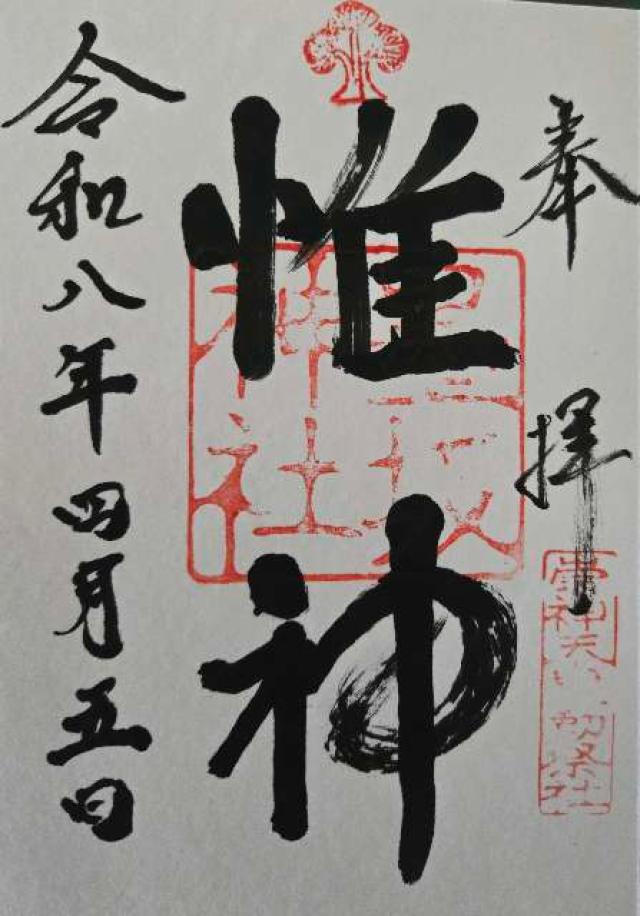 奉拝
惟神
神社
令和八年四月五日